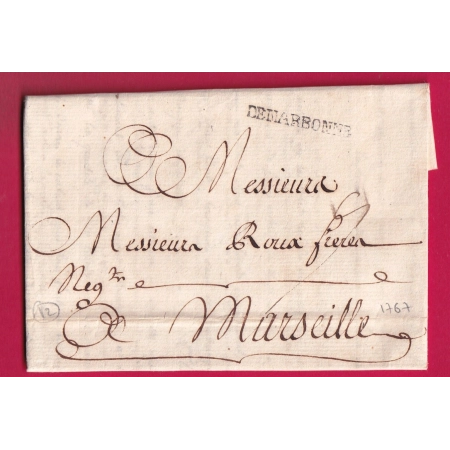 DENARBONNE
A Messieurs
Messieurs Roux freres
Neg.ts
A Marseille
12
1767